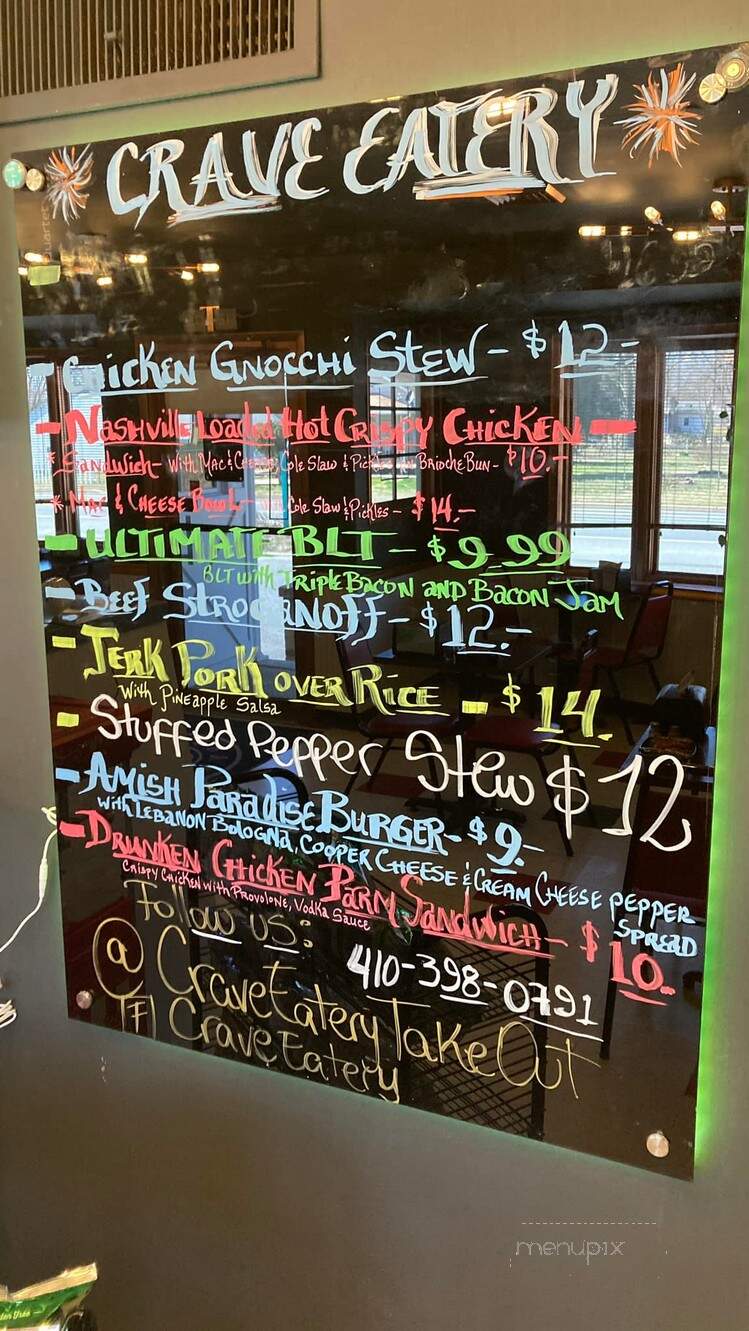 CRAVE EATERY
- Chicken Gnocchi Stew - $12-
- Nashville Loaded Hot Crispy Chicken -
* Sandwich - with Mac & Cheese, Cole Slaw & Pickles on Brioche Bun - $10.-
* Mac & Cheese Bowl - Cole Slaw & Pickles - $14.-
- ULTIMATE BLT - $9.99
BLT with Triple Bacon and Bacon Jam
- Beef Stroganoff - $12.-
- Jerk Pork over Rice - $14.
with Pineapple Salsa
- Stuffed Pepper Stew $12
- Amish Paradise Burger - $9.-
with Lebanon Bologna, Cooper Cheese & Cream Cheese Pepper
Spread
- Drunken Chicken Parm Sandwich - $10.-
Crispy Chicken with Provolone, Vodka Sauce
Follow us:
410-398-0791
@ CraveEateryTakeOut
F CraveEatery
menupix